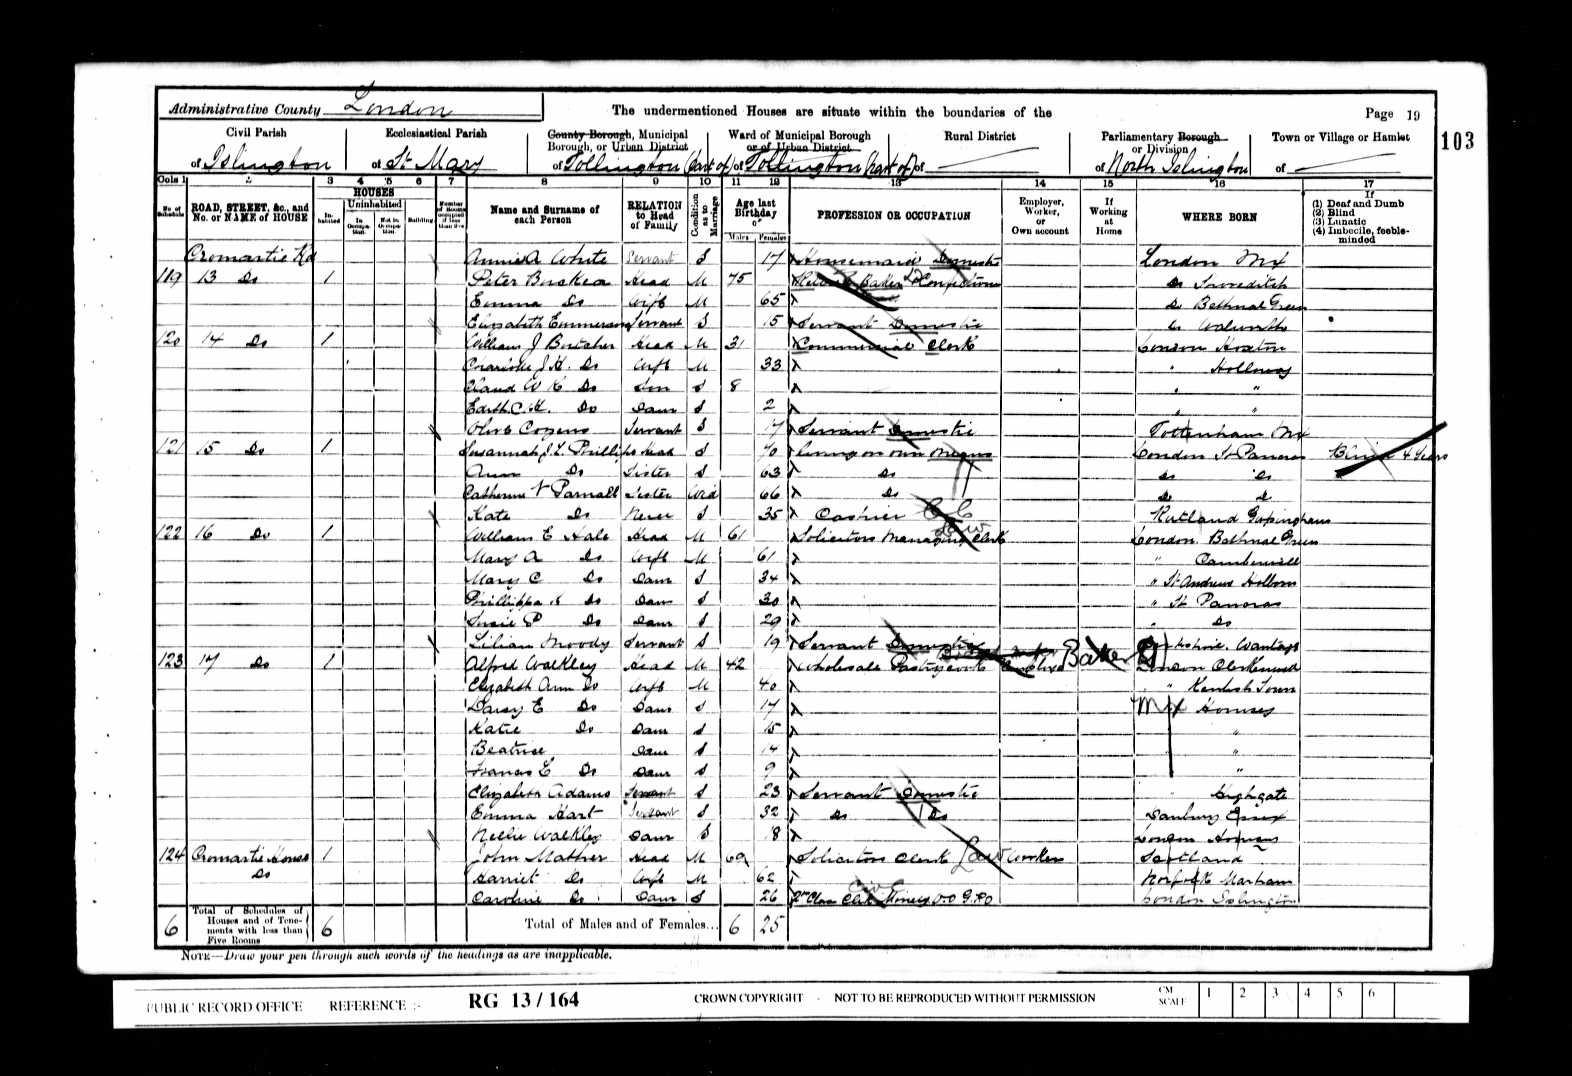 Administrative County London
The undermentioned Houses are situate within the boundaries of the
Page 19
103
Civil Parish
of Islington
Ecclesiastical Parish
of St Mary
County Borough, Municipal
Borough, or Urban District
of Tollington (part of)
Ward of Municipal Borough
or of Urban District
of Tollington (part of)
Rural District
of
Parliamentary Borough
or Division
of North Islington
Town or Village or Hamlet
of
Cols 1 2 3 4 5 6 7 8 9 10 11 12 13 14 15 16 17
No. of Schedule
ROAD, STREET, &c., and No. or NAME of HOUSE
HOUSES
Inhabited
Uninhabited
In Occupation.
Not in Occupation.
Building
Number of Rooms occupied if less than five
Name and Surname of each Person
RELATION to Head of Family
Condition as to Marriage
Age last Birthday of
Males Females
PROFESSION OR OCCUPATION
Employer, Worker, or Own account
If Working at Home
WHERE BORN
If
(1) Deaf and Dumb
(2) Blind
(3) Lunatic
(4) Imbecile, feeble-minded
Cromartie Rd Annie A White Servant S 17 Housemaid Domestic London Mx
119 13 Do 1 Peter Head M 75 Baker & Confectioner Do Shoreditch
Emma Do Wife M 65 Do Bethnal Green
Elizabeth Emmerson Servant S 15 Servant Domestic Do Walworth
120 14 Do 1 William J Butcher Head M 31 Commercial Clerk London Hoxton
Charlotte J H. Do Wife M 33 " Holloway
Claud W H Do Son S 8 " "
Edith C H. Do Daur S 2 " "
Olive Cozens Servant S 17 Servant Domestic Tottenham Mx
121 15 Do 1 Susannah J L Phillips Head S 70 Living on own means London St Pancras Blind 4 Years
Ann Do Sister S 63 Do Do Do
Catherine V Parnall Sister Wid 66 Do Do Do
Kate Do Neice S 35 Cashier C C Rutland
122 16 Do 1 William E Hale Head M 61 Solicitors Managing Clerk Law London Bethnal Green
Mary A Do Wife M 61 " Camberwell
Mary C Do Daur S 34 " St Andrews Holborn
Phillippa Do Daur S 30 " St Pancras
Susie P Do Daur S 29 " Do
Lilian Moody Servant S 19 Servant Domestic Berkshire. Wantage
123 17 Do 1 Alfred Walkley Head M 42 Wholesale Pastrycook Employer Baker London Clerkenwell
Elizabeth Ann Do Wife M 40 " Kentish Town
Daisy E Do Daur S 17 Mx Hornsey
Katie Do Daur S 15 "
Beatrice Daur S 14 "
Frances E Do Daur S 9 "
Elizabeth Adams Servant S 23 Servant Domestic " Highgate
Emma Hart Servant S 32 Do Do Danbury Essex
Nellie Walkley Daur S 18 London Hornsey
124 Cromartie House 1 John Mather Head M 69 Solicitors Clerk Law Worker Scotland
Do Harriet Do Wife M 62 Norfolk Marham
Caroline Do Daur S 26 2nd Class Clerk Money O.O G.P.O Civil London Islington
6 Total of Schedules of Houses and of Tenements with less than Five Rooms 6 Total of Males and of Females... 6 25
NOTE—Draw your pen through such words of the headings as are inapplicable.
PUBLIC RECORD OFFICE REFERENCE :- RG 13 / 164 CROWN COPYRIGHT - NOT TO BE REPRODUCED WITHOUT PERMISSION CM SCALE 1 2 3 4 5 6